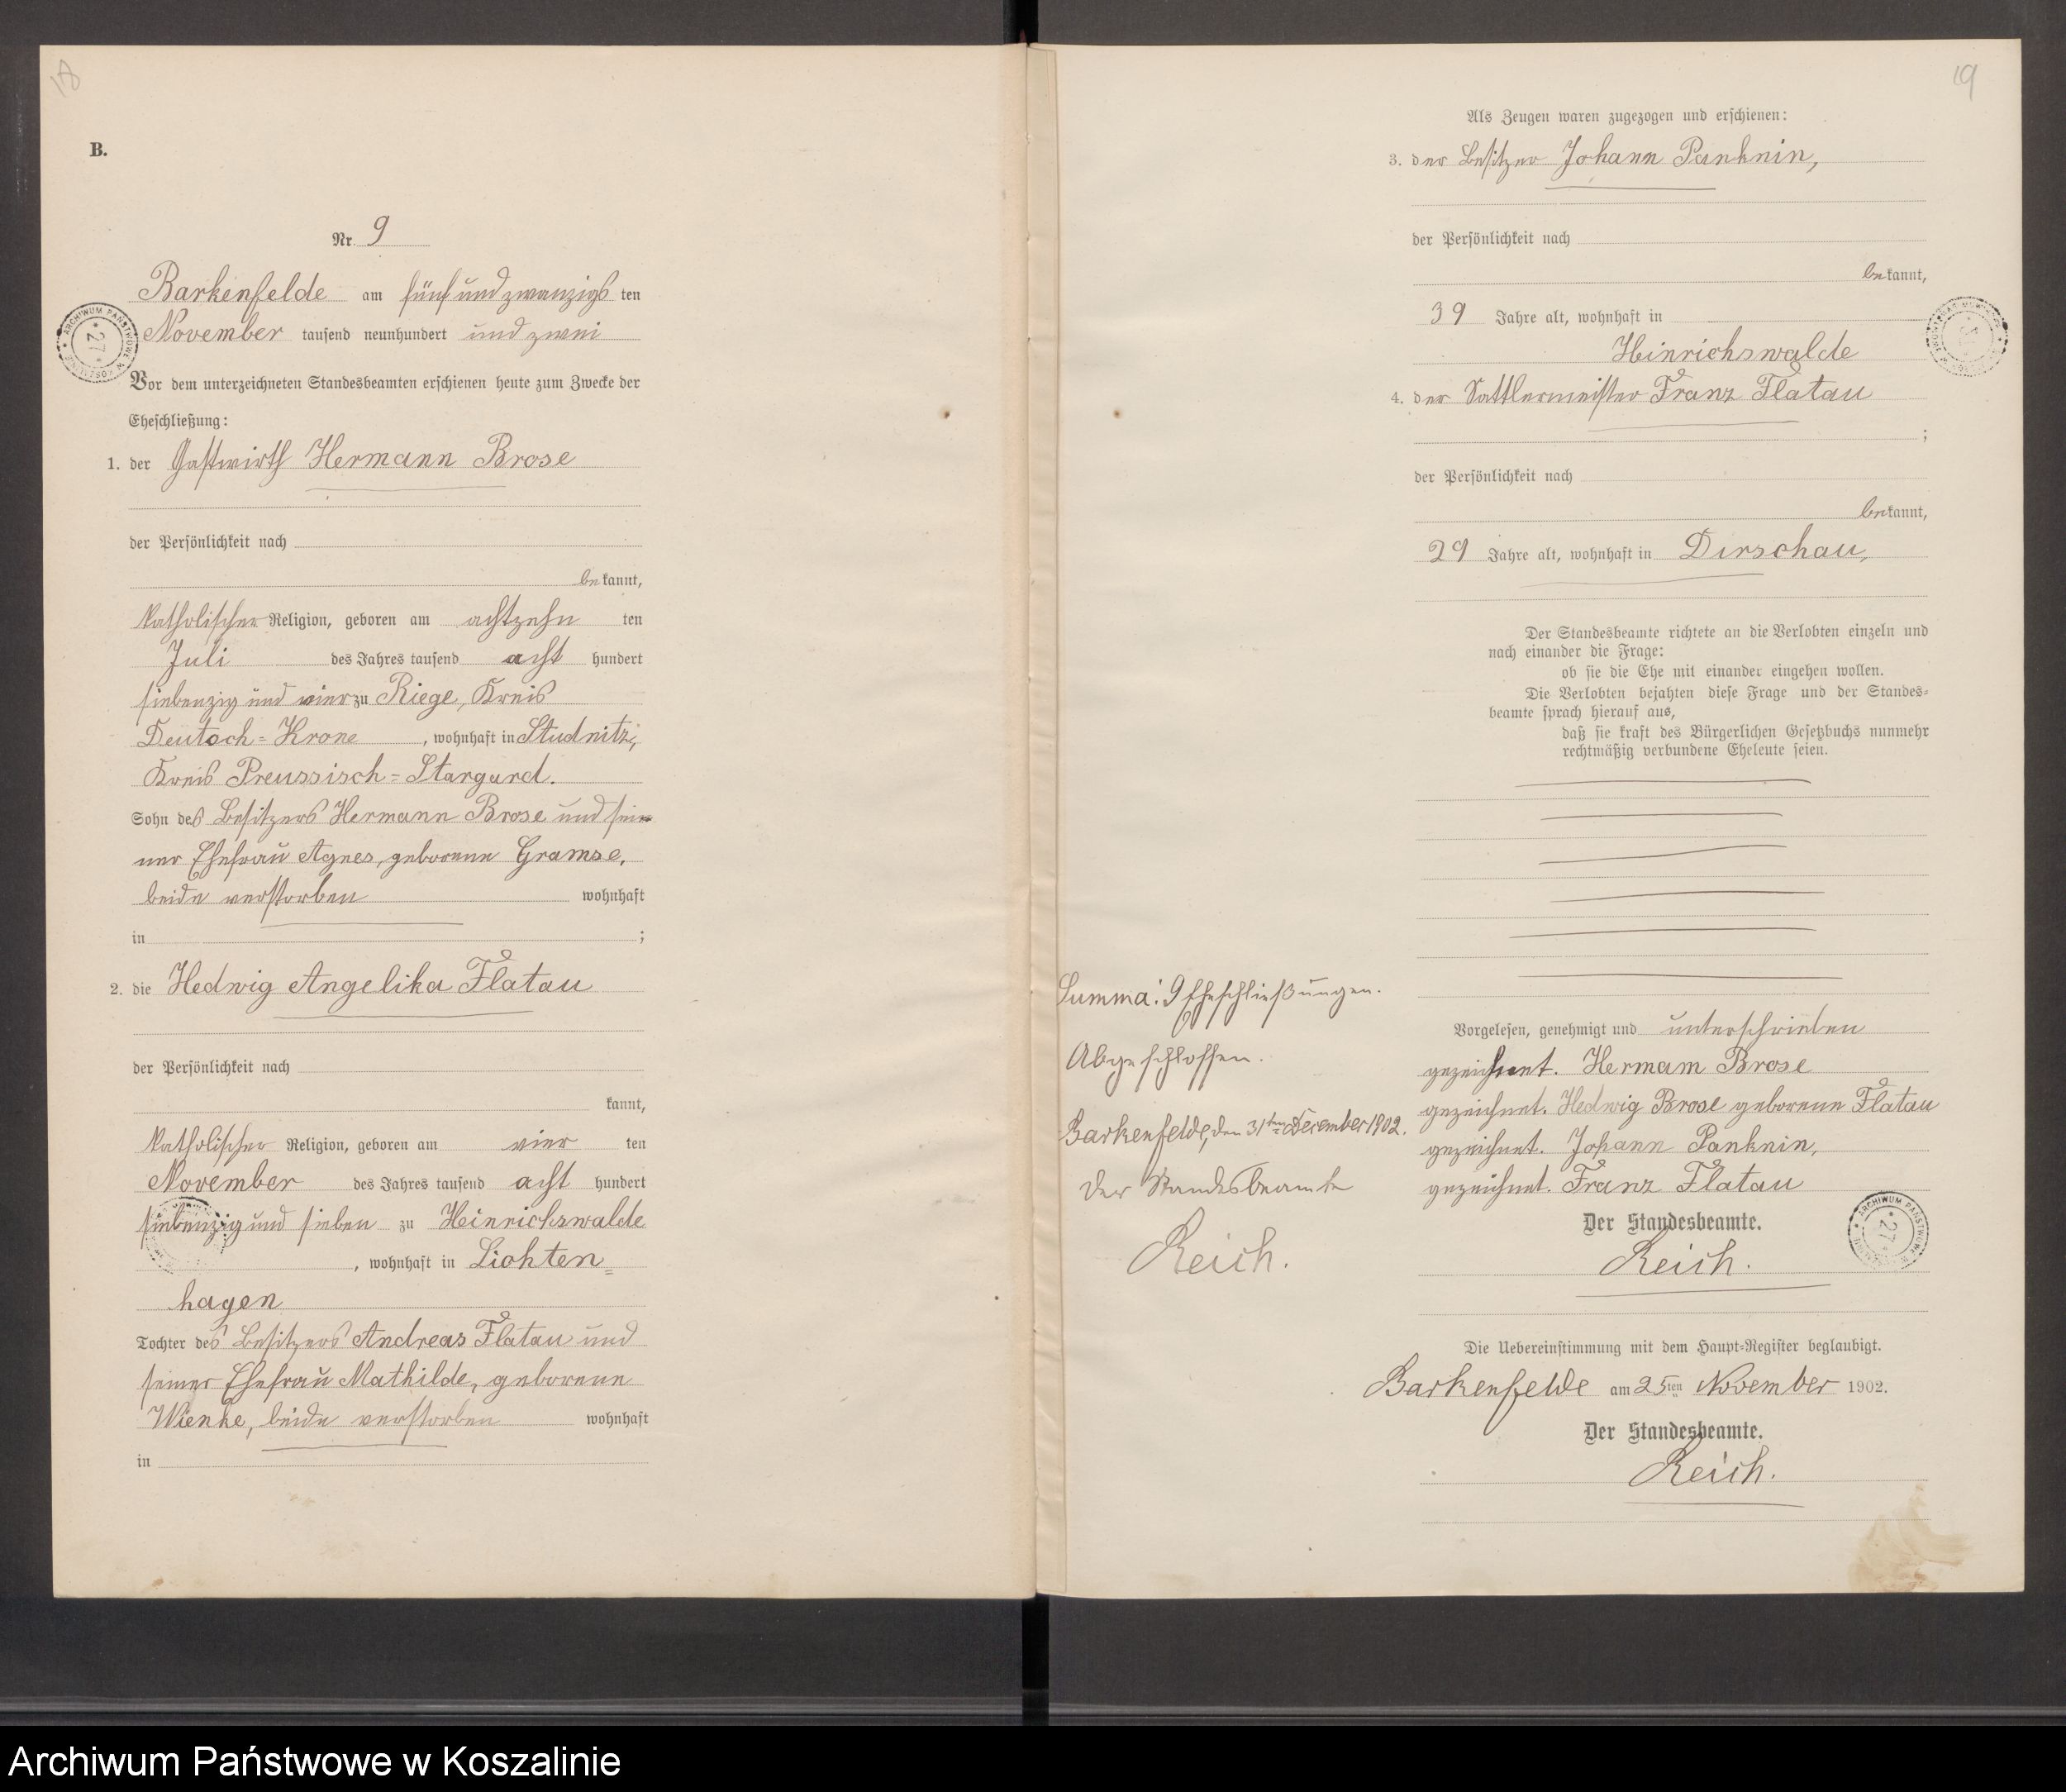 18
B.
Nr. 9
Barkenfelde am fünfundzwanzigsten
November tausend neunhundert und zwei
Vor dem unterzeichneten Standesbeamten erschienen heute zum Zwecke der
Eheschließung:
1. der Gastwirth Hermann Brose
der Persönlichkeit nach
bekannt,
katholischer Religion, geboren am achtzehnten
Juli des Jahres tausend achthundert
siebenzig und vier zu Riege, Kreis
Deutsch=Krone, wohnhaft in Studnitz,
Kreis Preussisch=Stargard.
Sohn des Besitzers Hermann Brose und sei=
ner Ehefrau Agnes, geborene Gramse,
beide verstorben wohnhaft
in ;
2. die Hedwig Angelika Flatau
der Persönlichkeit nach
kannt,
katholischer Religion, geboren am vierten
November des Jahres tausend achthundert
siebenzig und sieben zu Heinrichswalde
, wohnhaft in Lichten=
hagen
Tochter des Besitzers Andreas Flatau und
seiner Ehefrau Mathilde, geborene
Wienke, beide verstorben wohnhaft
in
19
Als Zeugen waren zugezogen und erschienen:
3. der Besitzer Johann Panknin,
der Persönlichkeit nach
bekannt,
39 Jahre alt, wohnhaft in
Heinrichswalde
4. der Sattlermeister Franz Flatau
;
der Persönlichkeit nach
bekannt,
29 Jahre alt, wohnhaft in Dirschau,
Der Standesbeamte richtete an die Verlobten einzeln und
nach einander die Frage:
ob sie die Ehe mit einander eingehen wollen.
Die Verlobten bejahten diese Frage und der Standes=
beamte sprach hierauf aus,
daß sie kraft des Bürgerlichen Gesetzbuchs nunmehr
rechtmäßig verbundene Eheleute seien.
Vorgelesen, genehmigt und unterschrieben
gezeichnet. Hermann Brose
gezeichnet. Hedwig Brose geborene Flatau
gezeichnet. Johann Panknin,
gezeichnet. Franz Flatau
Der Standesbeamte.
Reich.
Summa: 9 Eheschließungen.
Abgeschlossen.
Barkenfelde, den 31ten December 1902.
Der Standesbeamte
Reich.
Die Uebereinstimmung mit dem Haupt=Register beglaubigt.
Barkenfelde am 25ten November 1902.
Der Standesbeamte.
Reich.
ARCHIWUM PAŃSTWOWE W KOSZALINIE
27
Archiwum Państwowe w Koszalinie